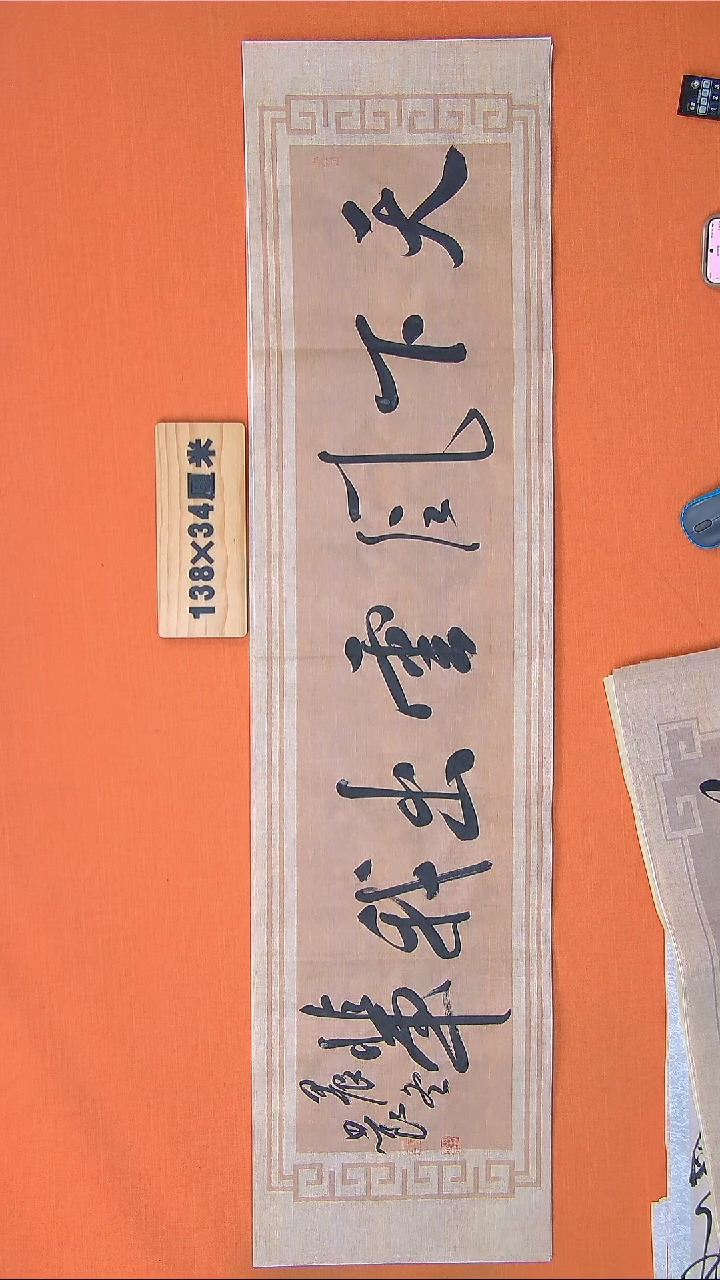 天下風雲出我輩
138×34厘米